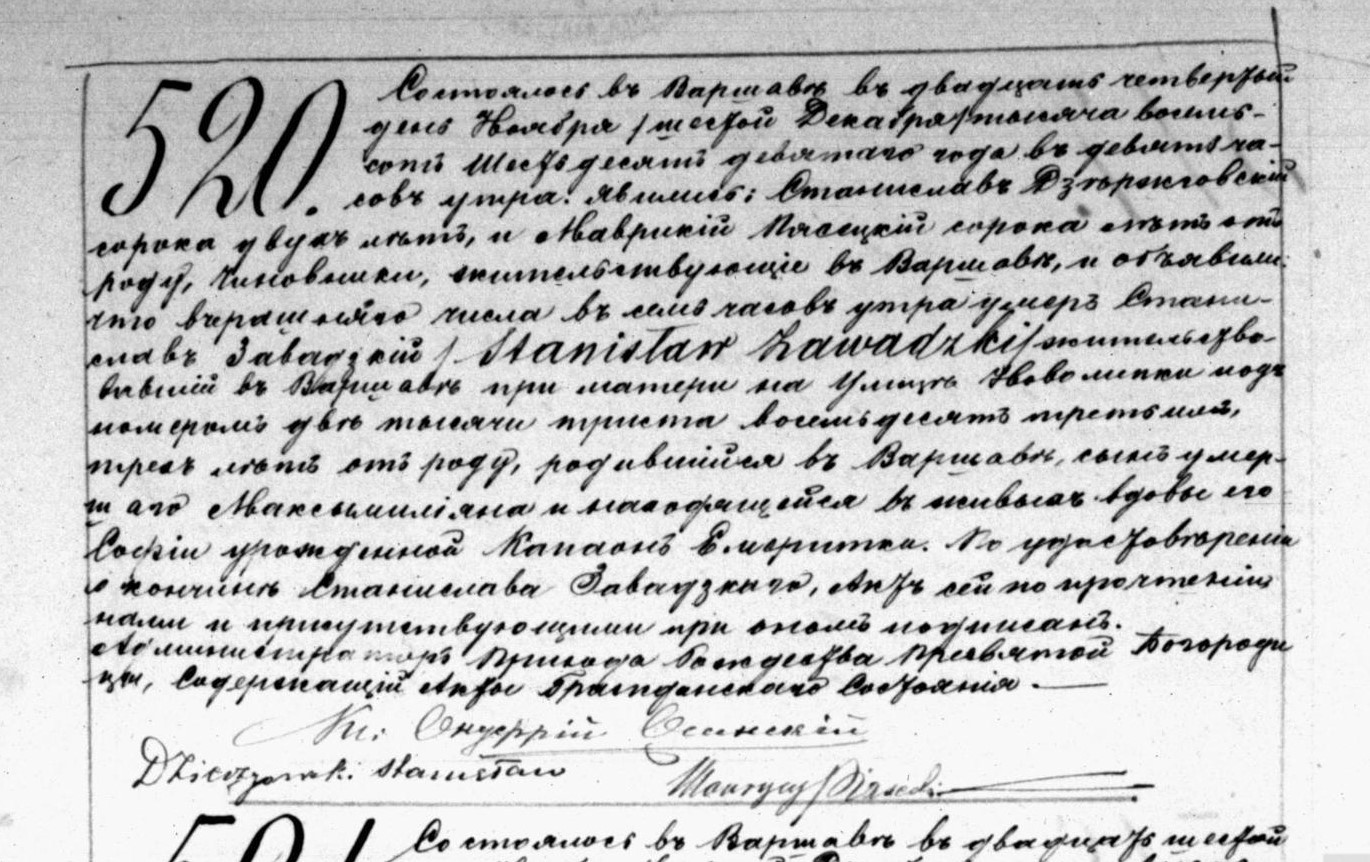 520.
Состоялось въ Варшавѣ въ двадцать четвертый
день Ноября /шестой Декабря/ тысяча восемь-
сотъ шестьдесятъ девятаго года въ девять ча-
совъ утра. явились: Станиславъ Дзѣржговскій
сорока двухъ лѣтъ, и Маврикій Пясецкій сорока лѣтъ отъ
роду, Чиновники, жительствующіе въ Варшавѣ, и объявили
что вчерашняго числа въ семь часовъ утра умеръ Стани-
славъ Завадзкій / Stanisław Zawadzki / жительство-
вавшій въ Варшавѣ при матери на Улицѣ Новолипки подъ
номеромъ двѣ тысячи триста восемьдесятъ третьимъ,
трехъ лѣтъ отъ роду, родившійся въ Варшавѣ, сынъ умер-
шаго Максымиліяна и находящейся въ живыхъ вдовы его
Софіи урожденной Капаонъ Емеритки. По удостовѣреніи
о кончинѣ Станислава Завадзкаго, Актъ сей по прочтеніи
нами и присутствующими при ономъ подписанъ.
Администраторъ Прихода Рождества Пресвятой Богороди
цы, Содержащій Акты Гражданскаго Состоянія
Кс. Онуфрій Осинскій
Dzierzgowski Stanisław
Maurycy Piasecki
521
Состоялось въ Варшавѣ въ двадцать шестой